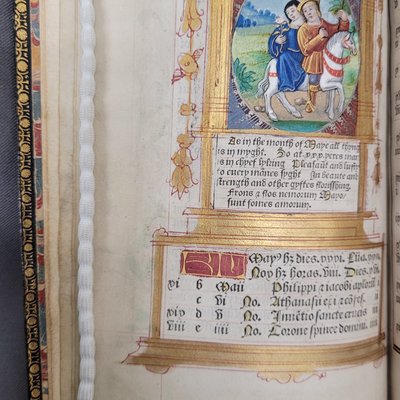 As in the month of Maye all thyng
is in myght. So at .xxx. yeres man
is in chyef lyking. Pleasaūt and lusty
to euery mānes syght. In beaute and
strength and other gyftes florisshing.
Frons & flos nemorum Mayo/
sunt fomes amorum.
KL Mayꝰ hz dies .xxxi. Lūa .xxx.
Nox hz horas .viii. Dies
xi b Maii Philippi et iacobi aploꝝ
c vi No. Athanasii epi et
xix d v No. Inuētio sancte crucis
viii e iiii No. Corone spinee domini.